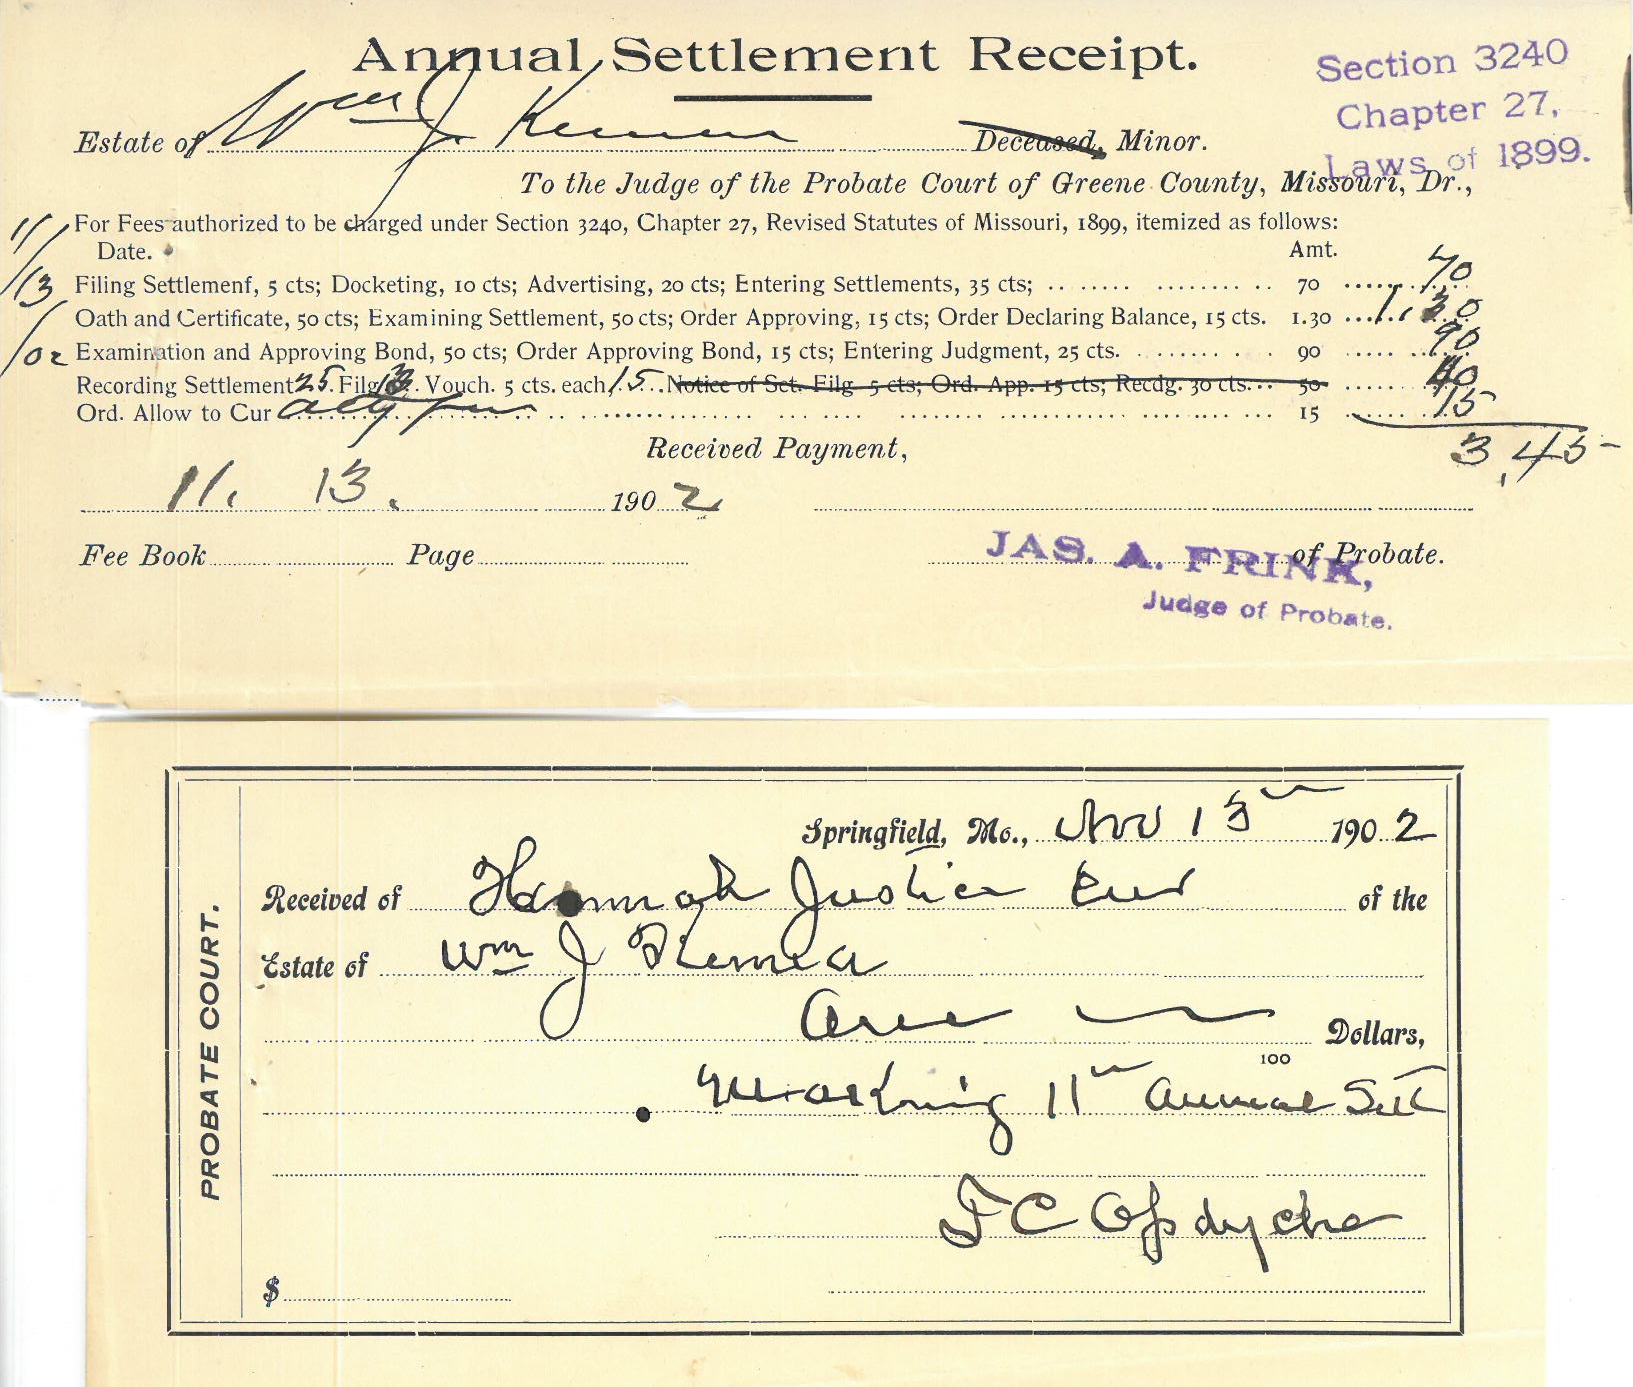 Annual Settlement Receipt.
Section 3240
Chapter 27,
Laws of 1899.
Estate of Wm J. Deceased, Minor.
To the Judge of the Probate Court of Greene County, Missouri, Dr.,
For Fees authorized to be charged under Section 3240, Chapter 27, Revised Statutes of Missouri, 1899, itemized as follows:
11/13/02
Date. Amt.
Filing Settlement, 5 cts; Docketing, 10 cts; Advertising, 20 cts; Entering Settlements, 35 cts; 70 70
Oath and Certificate, 50 cts; Examining Settlement, 50 cts; Order Approving, 15 cts; Order Declaring Balance, 15 cts. 1.30 1.30
Examination and Approving Bond, 50 cts; Order Approving Bond, 15 cts; Entering Judgment, 25 cts. 90 90
Recording Settlement 25. Filg 3 Vouch. 5 cts. each 15. Notice of Set. Filg. 5 cts; Ord. App. 15 cts; Recdg. 30 cts. 50 40
Ord. Allow to Cur 15 15
3.45
Received Payment,
11. 13. 1902
Fee Book Page of Probate.
JAS. A. FRINK,
Judge of Probate.
PROBATE COURT.
Springfield, Mo., Nov 13 1902
Received of Hannah Justice Cur of the
Estate of Wm J
One Dollars,
100
Making 11th Annual Sett
F C Opdycke
$